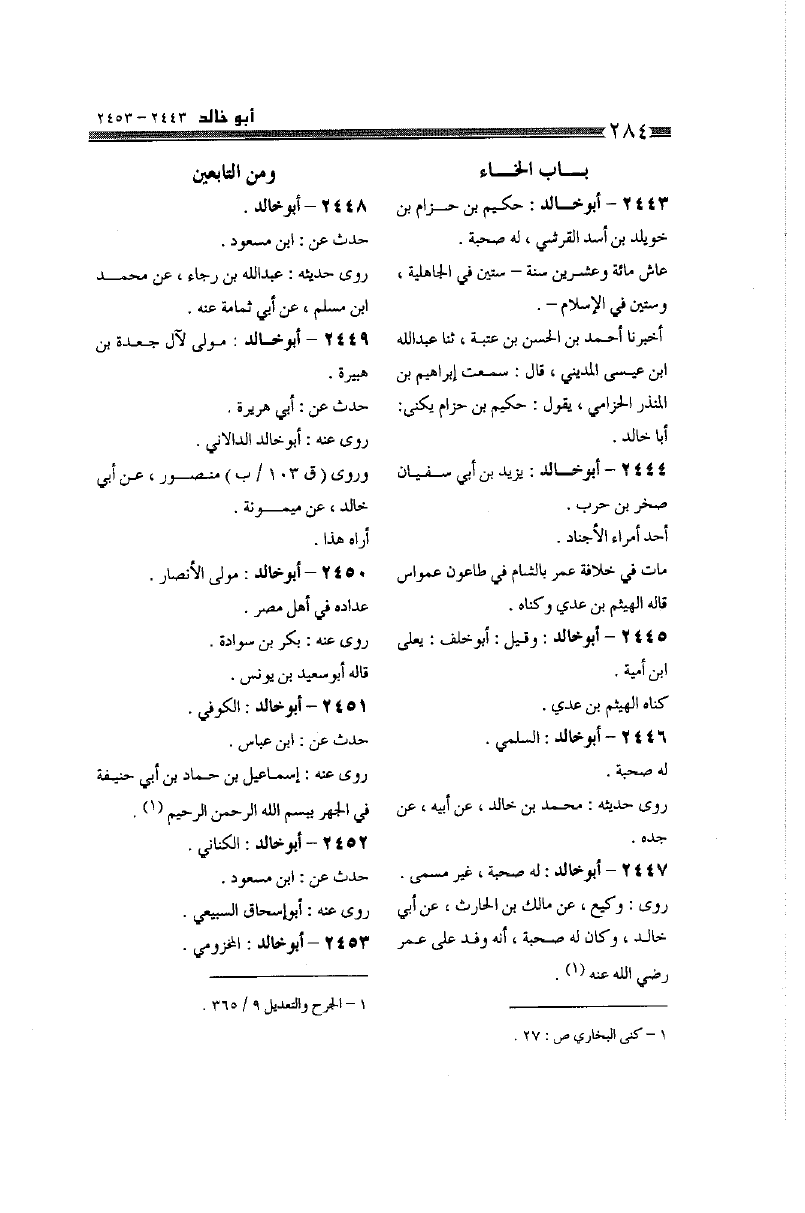 أبو خالد ٢٤٤٣ – ٢٤٥٣
٢٨٤
بـــاب الخـــاء
٢٤٤٣ – أبو خـــالد : حكيم بن حـزام بن
خويلد بن أسد القرشي ، له صحبة .
عاش مائة وعشرين سنة – ستين في الجاهلية ،
وستين في الإسلام – .
أخبرنا أحمد بن الحسن بن عتبة ، ثنا عبدالله
ابن عيسى المديني ، قال : سمعت إبراهيم بن
المنذر الحزامي ، يقول : حكيم بن حزام يكنى:
أبا خالد .
٢٤٤٤ – أبو خـــالد : يزيد بن أبي سـفـيـان
صخر بن حرب .
أحد أمراء الأجناد .
مات في خلافة عمر بالشام في طاعون عمواس
قاله الهيثم بن عدي وكناه .
٢٤٤٥ – أبو خالد : وقيل : أبو خلف : يعلى
ابن أمية .
كناه الهيثم بن عدي .
٢٤٤٦ – أبو خالد : السلمي .
له صحبة .
روى حديثه : محمد بن خالد ، عن أبيه ، عن
جده .
٢٤٤٧ – أبو خالد : له صحبة ، غير مسمى .
روى : وكيع ، عن مالك بن الحارث ، عن أبي
خالد ، وكان له صحبة ، أنه وفد على عمر
رضي الله عنه (١) .
١ – كنى البخاري ص : ٢٧ .
ومن التابعين
٢٤٤٨ – أبو خالد .
حدث عن : ابن مسعود .
روى حديثه : عبدالله بن رجاء ، عن محمـــد
ابن مسلم ، عن أبي ثمامة عنه .
٢٤٤٩ – أبو خـــالد : مـولى لآل جـعـدة بن
هبيرة .
حدث عن : أبي هريرة .
روى عنه : أبو خالد الدالاني .
وروى ( ق ١٠٣ / ب ) منصـــور ، عـن أبي
خالد ، عن ميمـــونة .
أراه هذا .
٢٤٥٠ – أبو خالد : مولى الأنصار .
عداده في أهل مصر .
روى عنه : بكر بن سوادة .
قاله أبو سعيد بن يونس .
٢٤٥١ – أبو خالد : الكوفي .
حدث عن : ابن عباس .
روى عنه : إسماعيل بن حماد بن أبي حنيفة
في الجهر ببسم الله الرحمن الرحيم (١) .
٢٤٥٢ – أبو خالد : الكناني .
حدث عن : ابن مسعود .
روى عنه : أبو إسحاق السبيعي .
٢٤٥٣ – أبو خالد : المخزومي .
١ – الجرح والتعديل ٩ / ٣٦٥ .